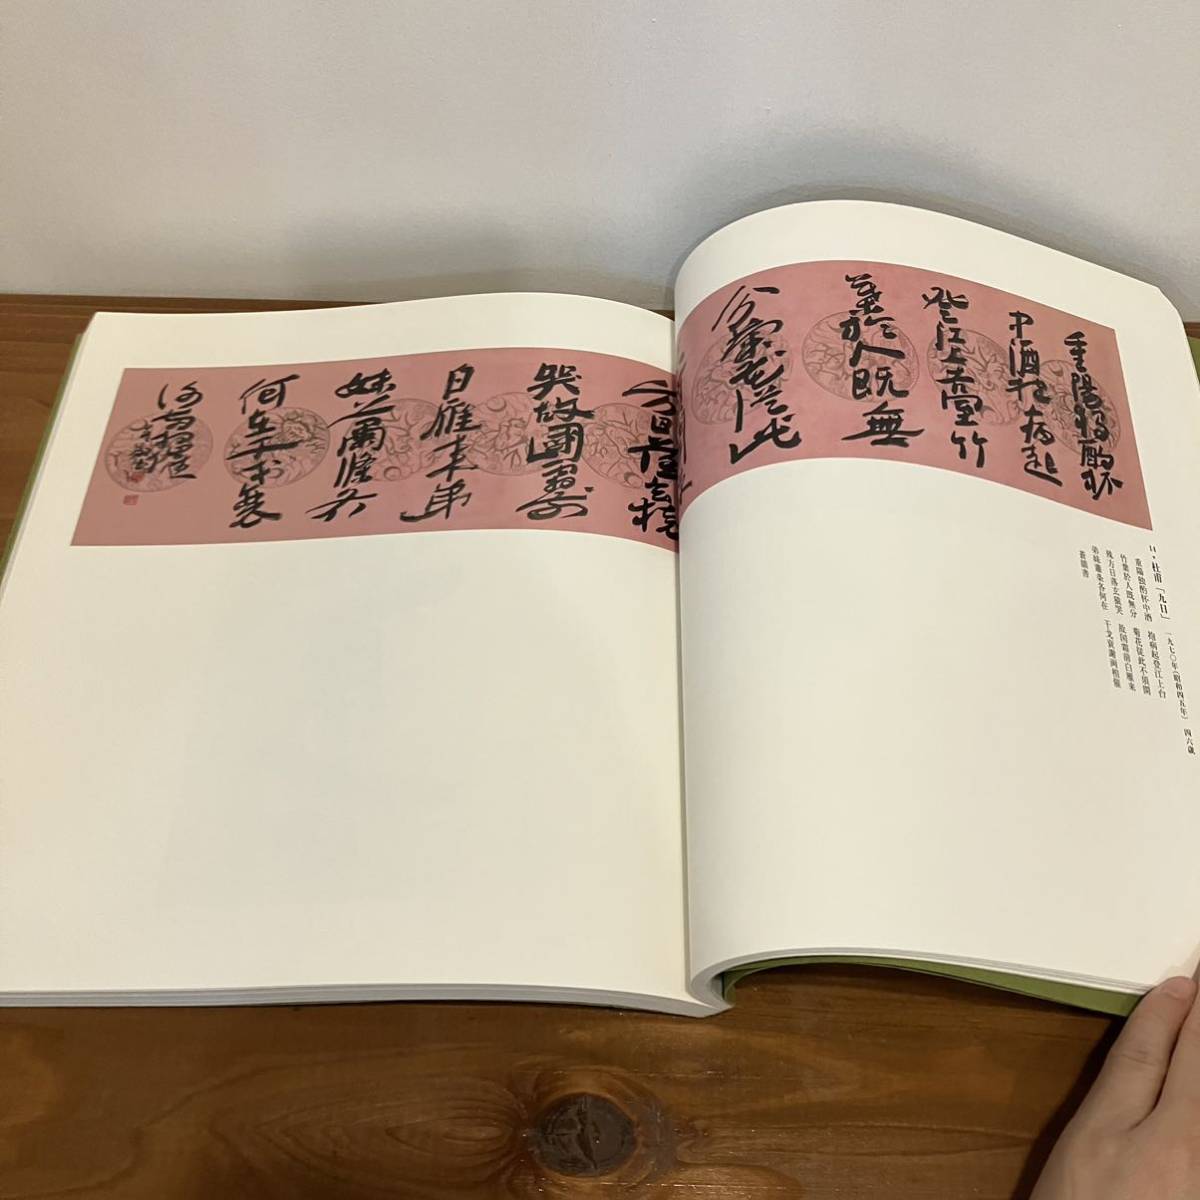 重陽獨酌杯
中酒抱病起
登江上臺竹
葉於人既無
分菊花從此
方日落玄猿
哭故國霜前
白雁来弟
妹蕭條各
何在干戈衰
謝両相催
14・杜甫「九日」 一九七〇年(昭和四五年) 四六歳
重陽独酌杯中酒 抱病起登江上台
竹葉於人既無分 菊花従此不須開
殊方日落玄猿哭 故国霜前白雁来
弟妹蕭条各何在 干戈衰謝両相催